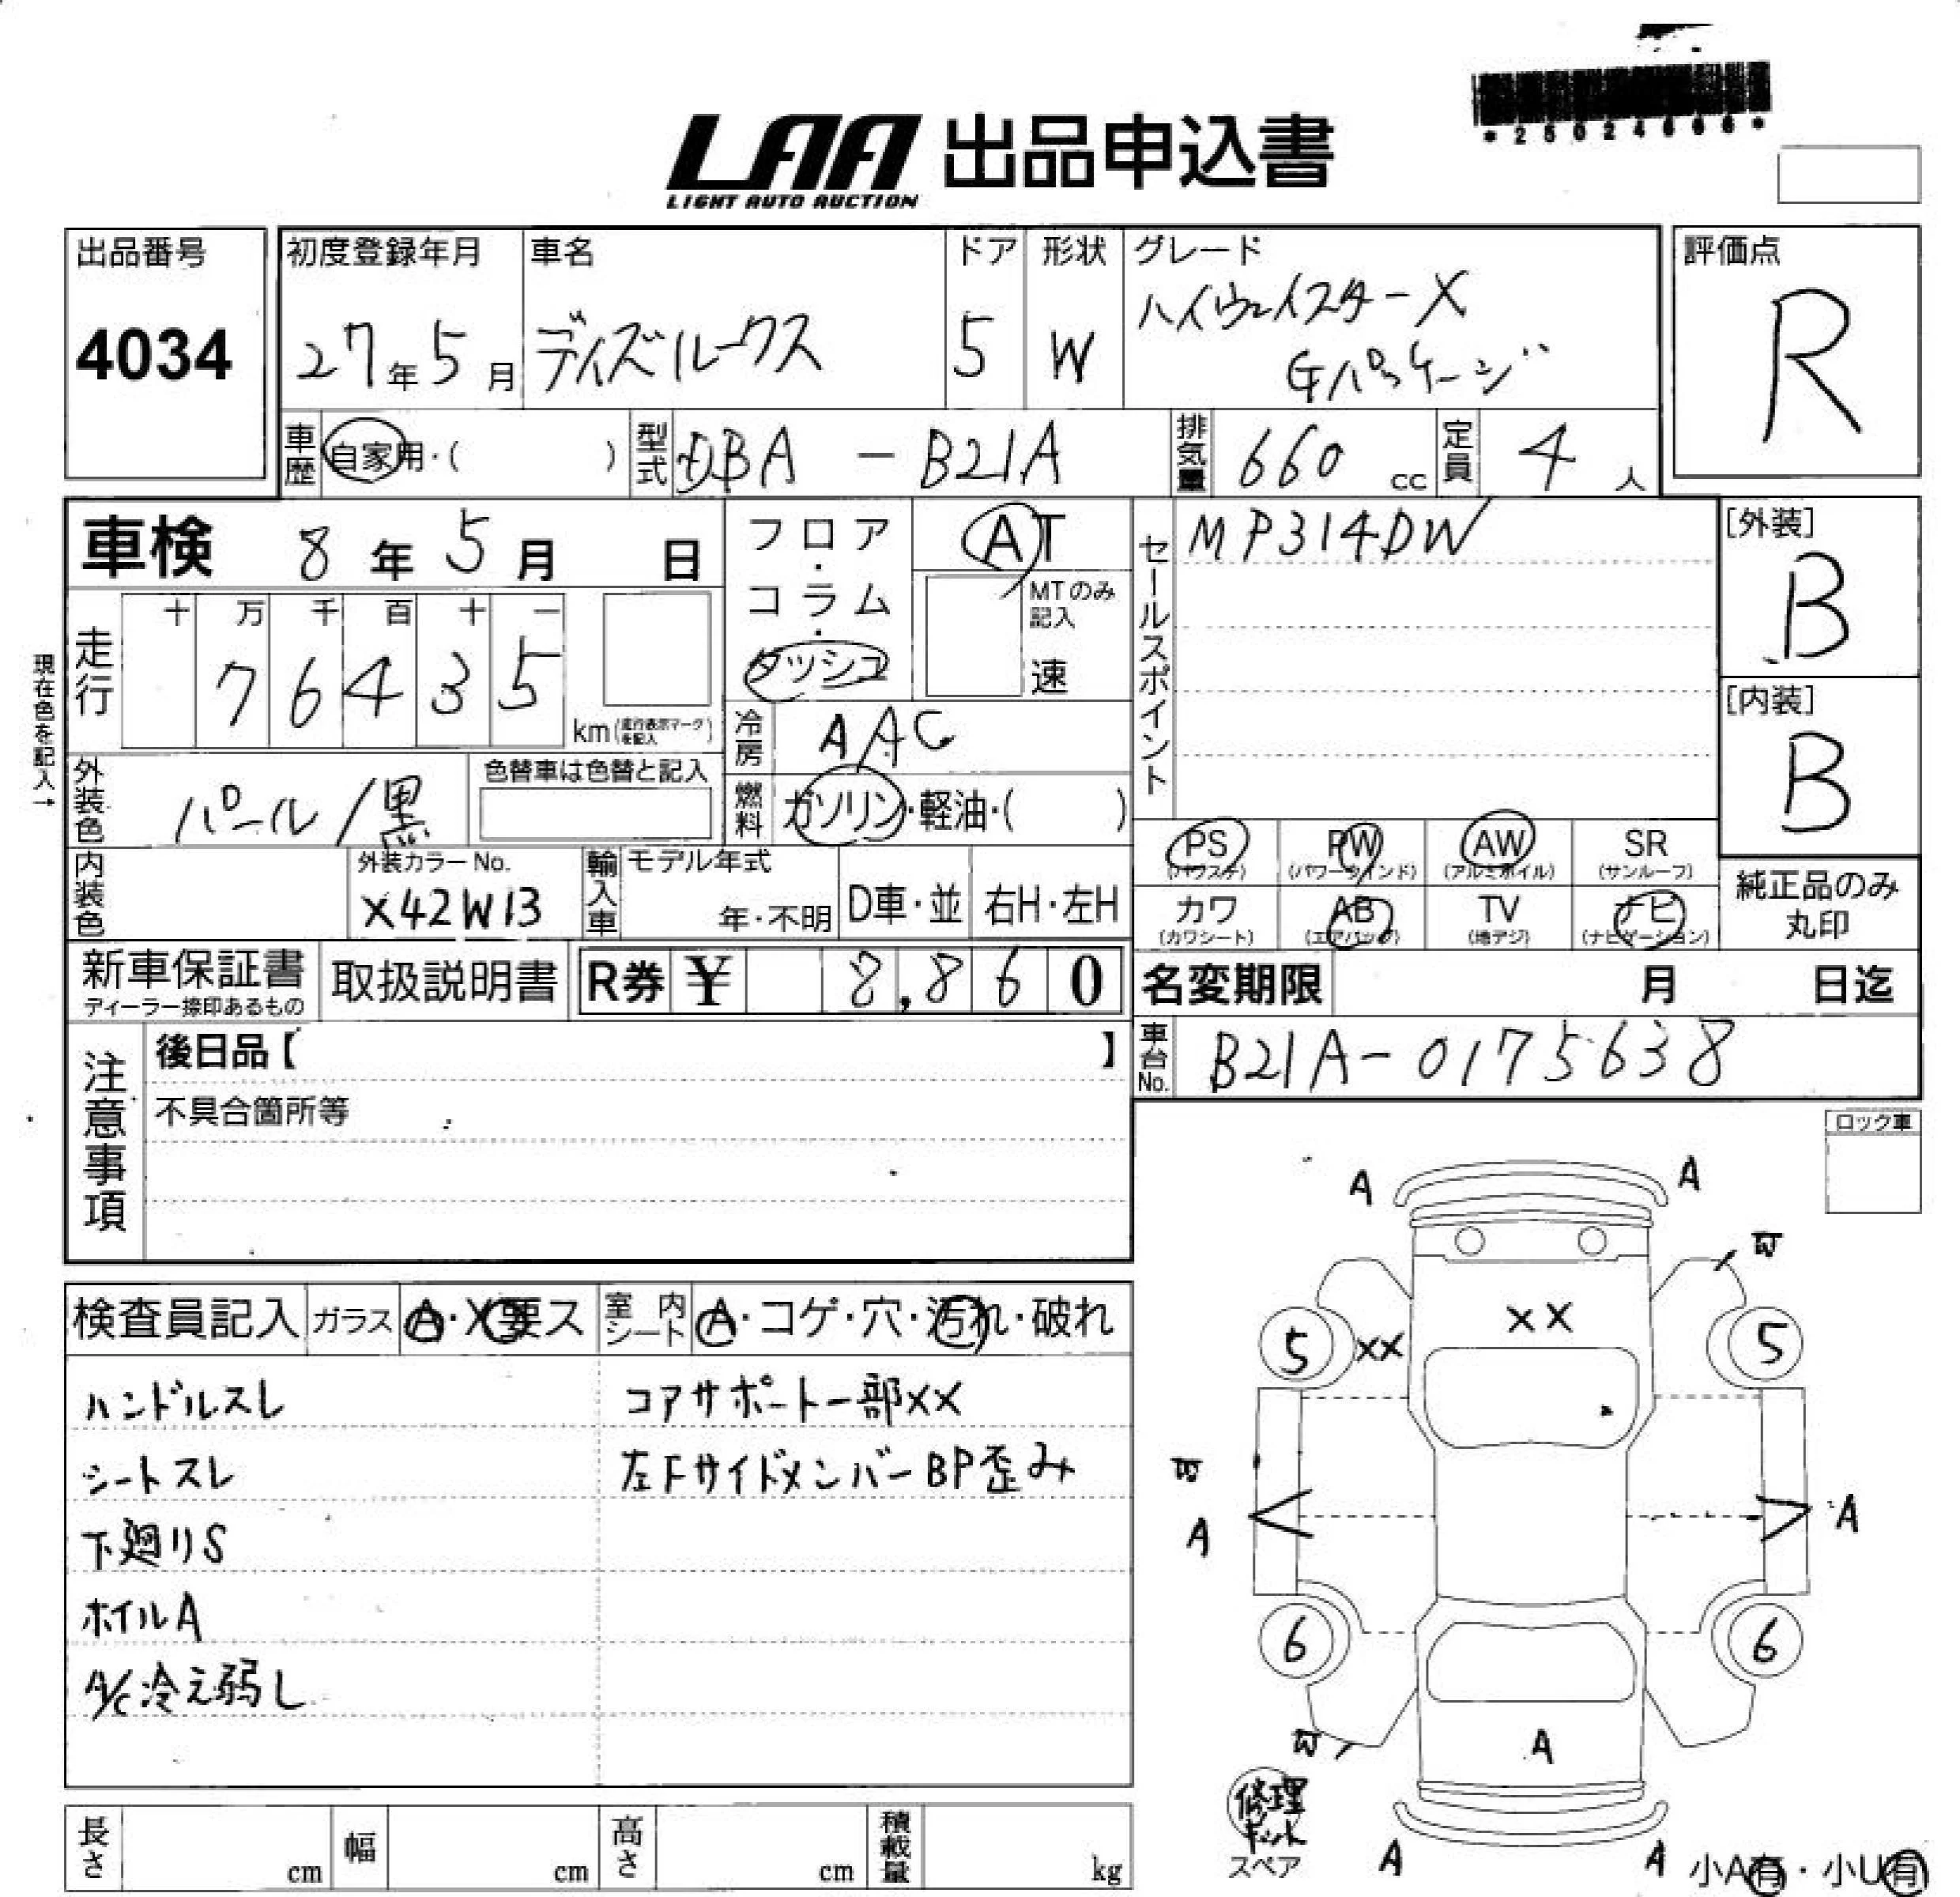 LAA 出品申込書
LIGHT AUTO AUCTION
出品番号
4034
初度登録年月
27年5月
車名
デイズルークス
ドア
5
形状
W
グレード
ハイウェイスターX
Gパッケージ
評価点
R
車歴
自家用・( )
型式
DBA - B21A
排気量
660 cc
定員
4 人
車検 8年5月 日
フロア・コラム・ダッシュ
AT
MTのみ記入
速
セールスポイント
MP314DW
[外装]
B
[内装]
B
現在色を記入→
走行
十 万 千 百 十 一
7 6 4 3 5
km(走行表示マークを記入)
冷房
AAC
外装色
パール/黒
色替車は色替と記入
燃料
ガソリン・軽油・( )
内装色
外装カラーNo.
X42W13
輸入車
モデル年式
年・不明
D車・並
右H・左H
PS
(パワステ)
PW
(パワーウインド)
AW
(アルミホイル)
SR
(サンルーフ)
カワ
(カワシート)
AB
(エアバッグ)
TV
(地デジ)
ナビ
(ナビゲーション)
純正品のみ
丸印
新車保証書
ディーラー捺印あるもの
取扱説明書
R券 ¥ 8,860
名変期限 月 日迄
車台No.
B21A-0175638
注意事項
後日品【 】
不具合箇所等
ロック車
検査員記入
ガラス
A・X・要ス
室内シート
A・コゲ・穴・汚れ・破れ
ハンドルスレ
コアサポート一部XX
シートスレ
左FサイドメンバーBP歪み
下廻りS
ホイルA
A/C冷え弱し
A A
XX
5 XX 5
A A
6 6
A
修理キット
スペア
A A
小A有・小U有
長さ cm
幅 cm
高さ cm
積載量 kg